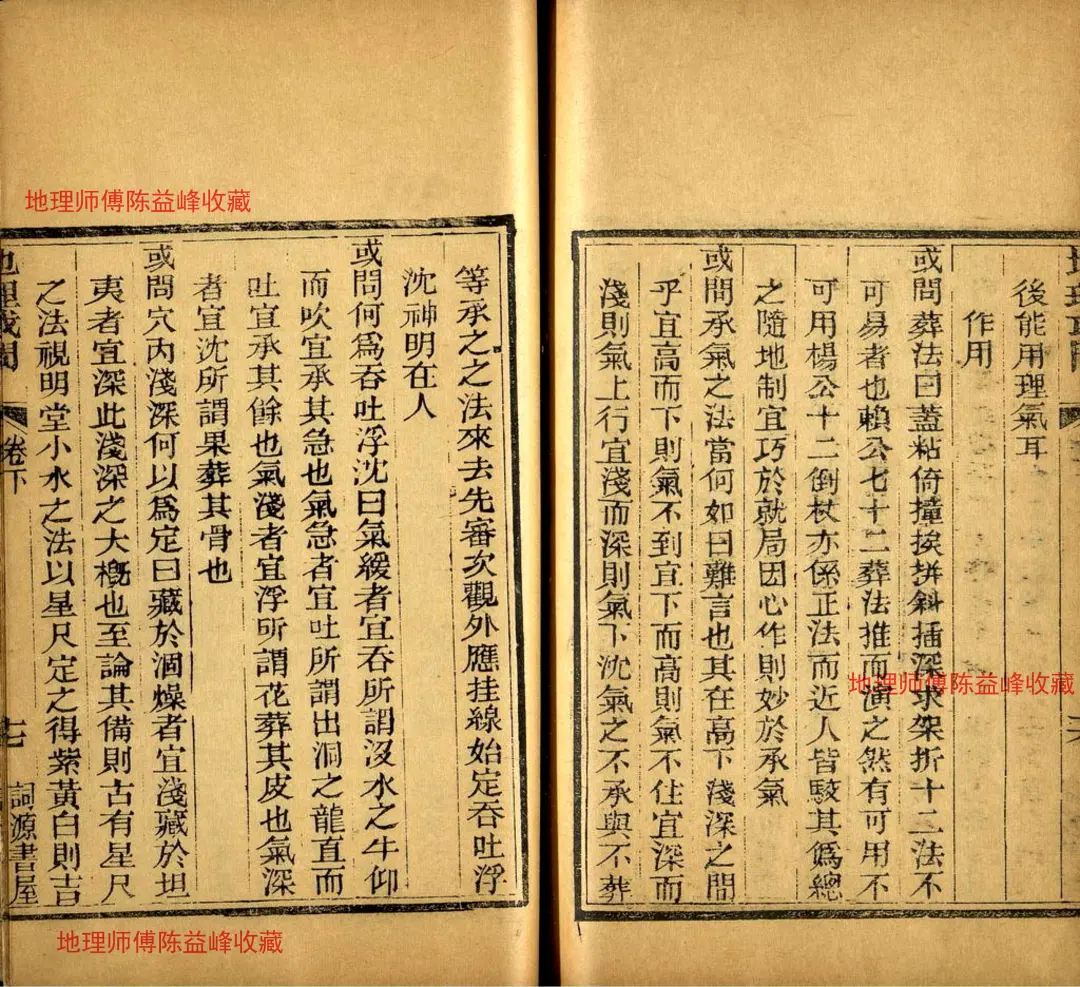 後能用理氣耳
作用
或問葬法曰蓋粘倚撞挨拼斜插深求架折十二法不
可易者也賴公七十二葬法推而演之然有可用不
可用楊公十二倒杖亦係正法而近人皆駁其僞總
之隨地制宜巧於就局因心作則妙於承氣
或問承氣之法當何如曰難言也其在高下淺深之間
乎宜高而下則氣不到宜下而高則氣不住宜深而
淺則氣上行宜淺而深則氣下沈氣之不承與不葬
等承之之法來去先審次觀外應挂線始定吞吐浮
沈神明在人
或問何爲吞吐浮沈曰氣緩者宜吞所謂沒水之牛仰
而吹宜承其急也氣急者宜吐所謂出洞之龍直而
吐宜承其餘也氣淺者宜浮所謂花葬其皮也氣深
者宜沈所謂果葬其骨也
或問穴內淺深何以爲定曰藏於涸燥者宜淺藏於坦
夷者宜深此淺深之大槪也至論其備則古有星尺
之法視明堂小水之法以星尺定之得紫黃白則吉
地理或問
卷下
十七
詞源書屋
地理师傅陈益峰收藏
地理师傅陈益峰收藏
地理师傅陈益峰收藏